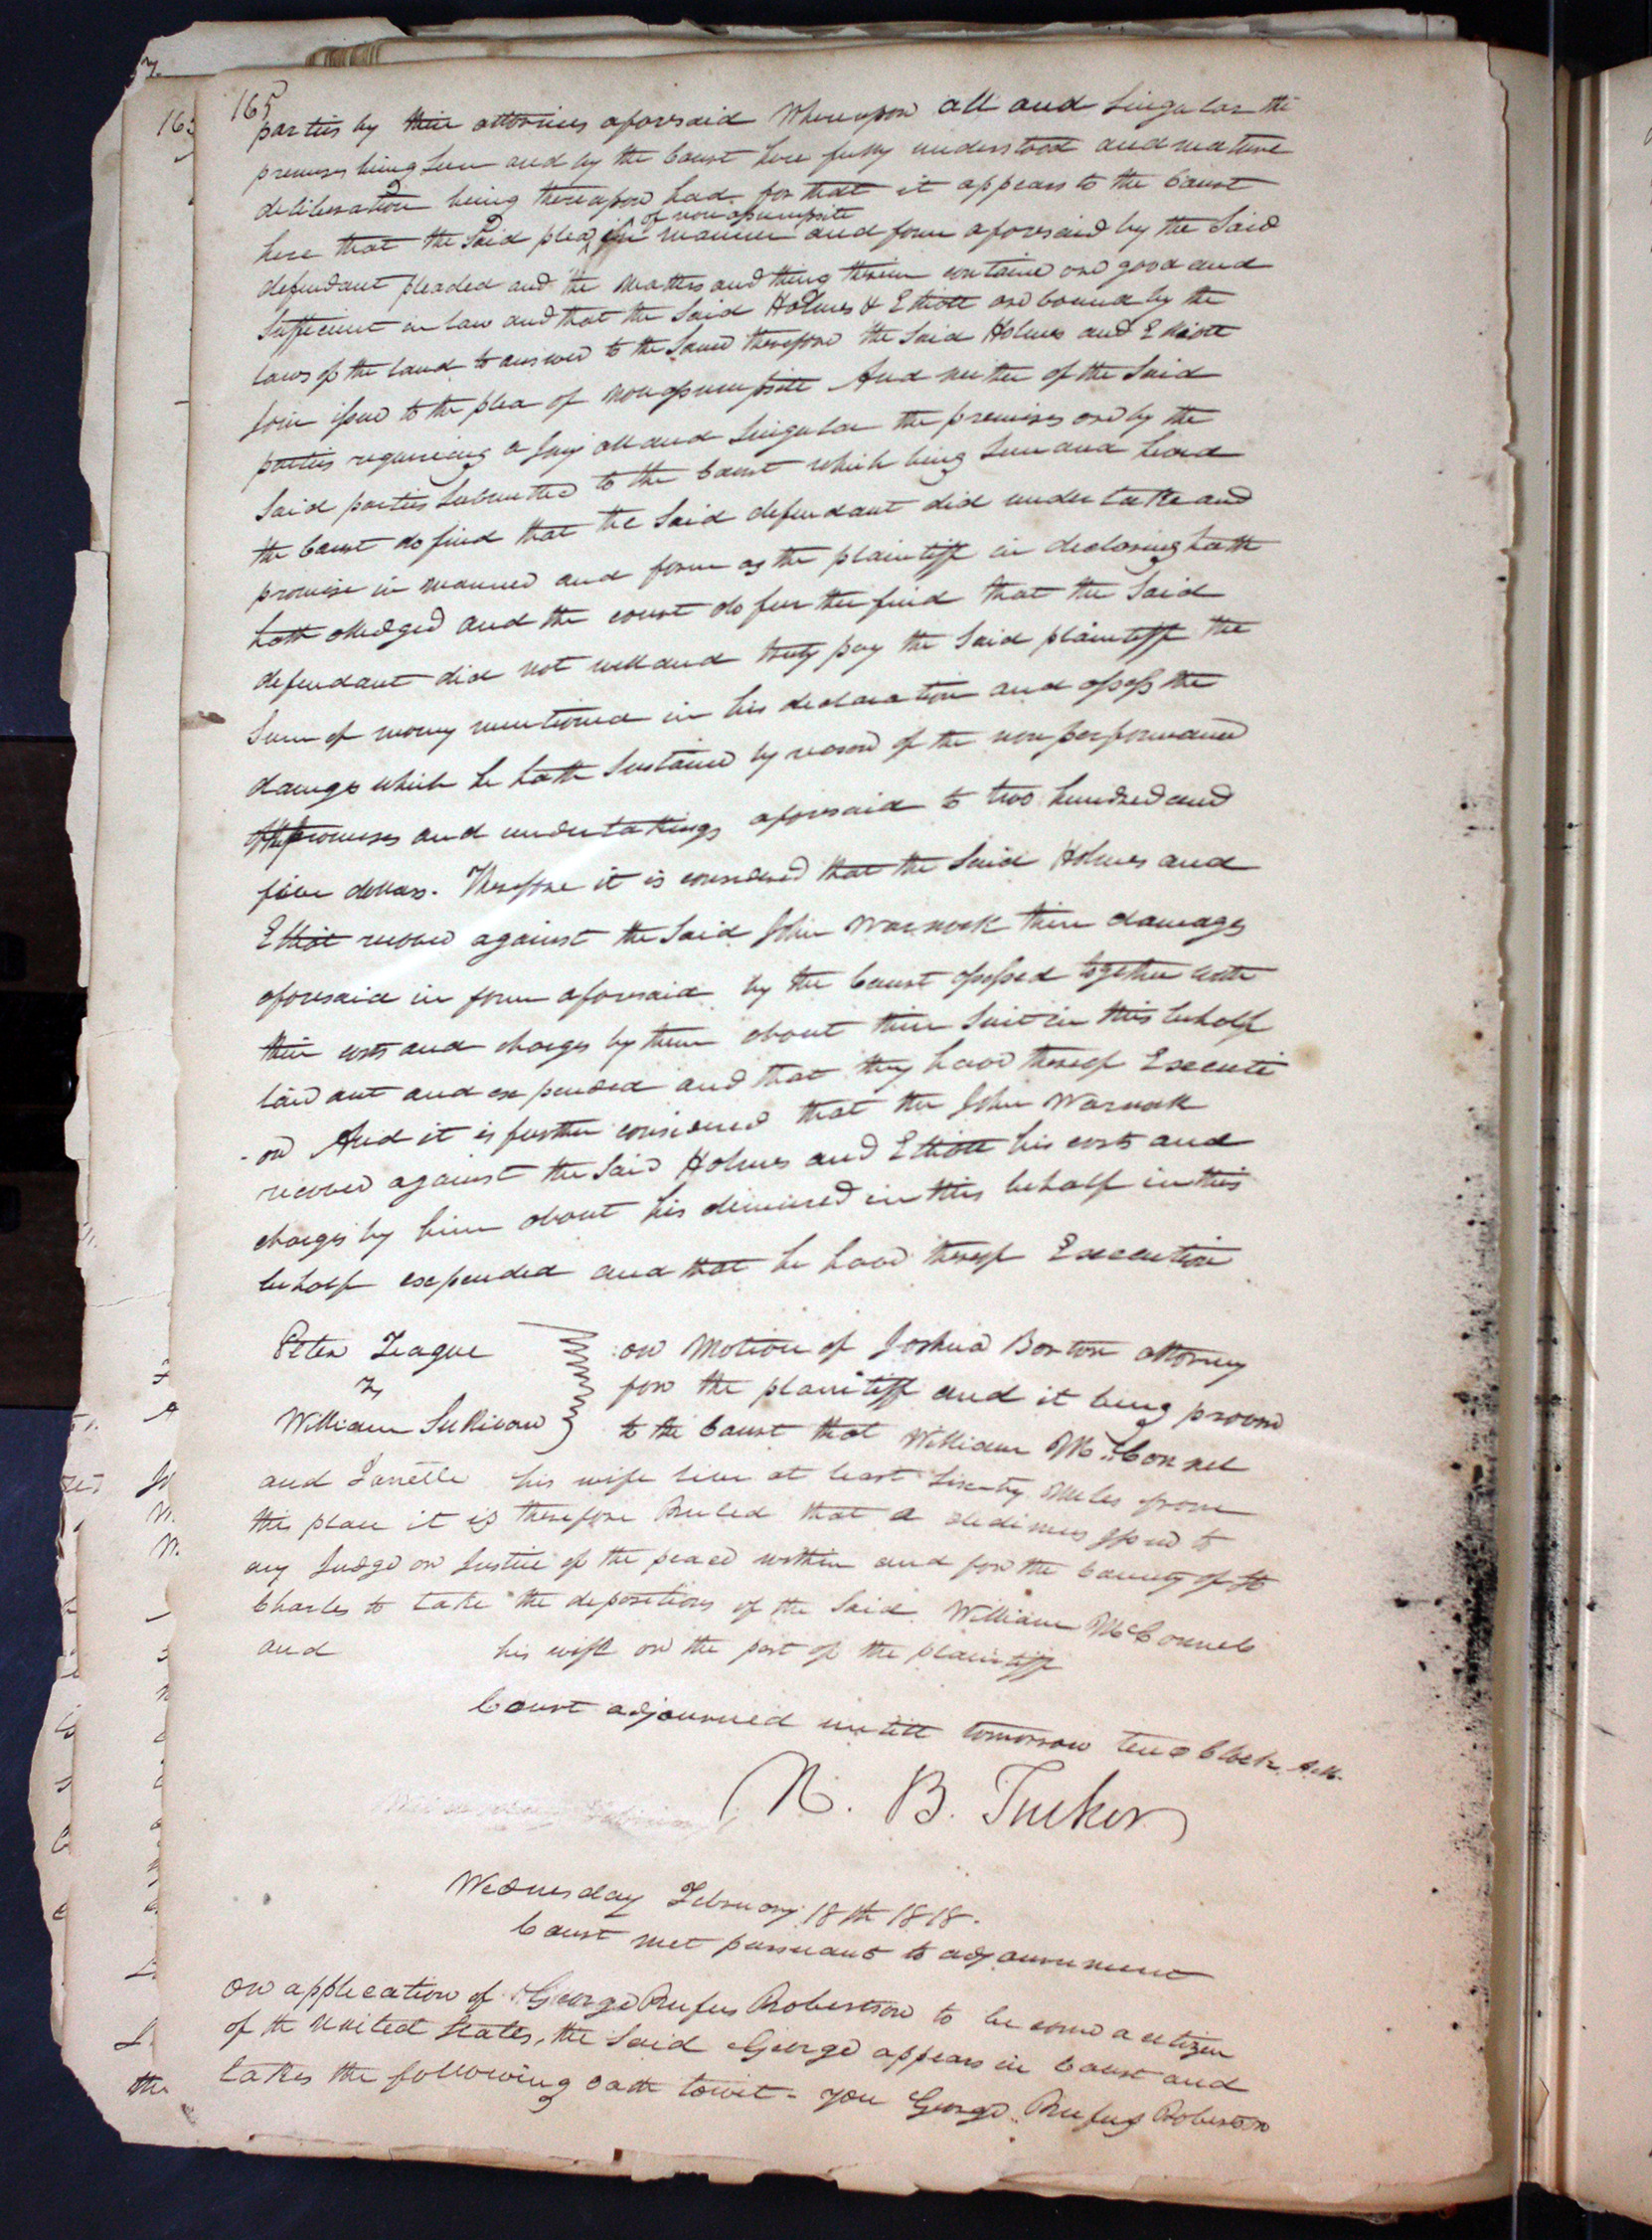 165
parties by their attornies aforesaid Whereupon all and Singular the
premises being seen and by the Court here fully understood and mature
deliberation being thereupon had for that it appears to the Court
of nonassumpsite
here that the Said plea in manner and form aforesaid by the Said
defendant pleaded and the matters and thing therein containe are good and
Sufficient in law and that the Said Holmes & Elliott are bound by the
laws of the land to answer to the Same therefore the Said Holmes and Elliott
join issue to the plea of nonassumpsite And neither of the Said
parties requireing a jury all and Singular the premises are by the
Said parties Submitted to the Court which being Seen and heard
the Court do find that the Said defendant did undertake and
promise in manner and form as the plaintiff in declaring hath
hath alledged and the court do further find that the Said
defendant did not well and truly pay the Said plaintiff the
Sum of money mentioned in his declaration and assess the
damage which he hath Sustained by reason of the non performance
of the promises and undertakings aforesaid to two hundred and
five dollars. Therefore it is considered that the Said Holmes and
Elliot recover against the Said John Warnock their damages
aforesaid in form aforesaid by the Court assessed together with
their costs and charges by them about their Suit in this behalf
laid out and expended and that they have thereof Executi
-on And it is further considered that the John Warnock
recover against the Said Holmes and Elliott his costs and
charges by him about his demurred in this behalf in this
behalf expended and that he have thereof Execution
Peter Teague
vs
William Sullivan
on Motion of Joshua Barton attorney
for the plaintiff and it being proven
to the Court that William McConnel
and his wife live at least Sixty Miles from
this place it is therefore Ruled that a dedimus issue to
any Judge or Justice of the peace within and for the County of St
Charles to take the depositions of the Said William McConnel
and his wife on the part of the plaintiff
Court adjourned untill tomorrow ten o Clock A.M.
N. B. Tucker
Wednesday February 18th 1818.
Court met pursuant to adjournment
on application of George Rufus Robertson to become a citizen
of the United States, the Said George appears in Court and
takes the following oath towit - you George Rufus Robertson